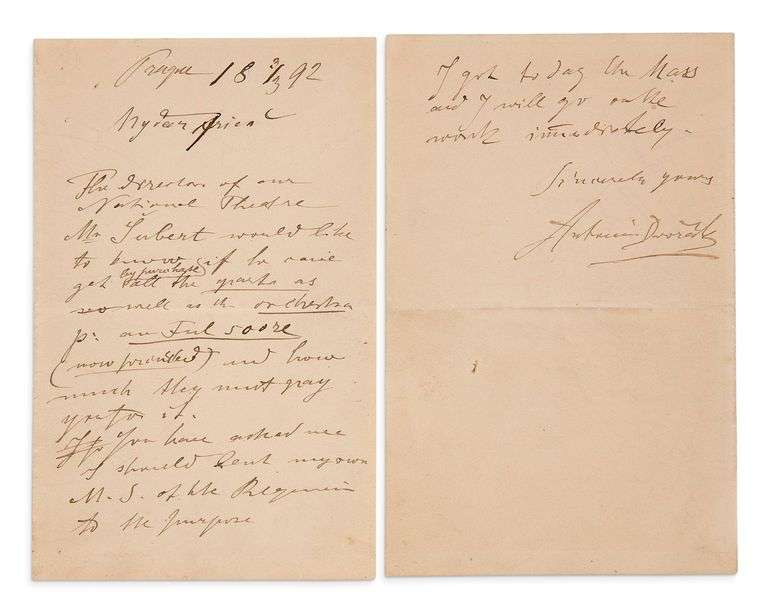 Prague 18 9/3 92
My dear friend
The director of our
National Theatre
Mr Subert would like
to know if he can
get (by purchase) all the parts as
well as the orchestra
p: an Ful score
(now printed) and how
much they must pay
you for it.
If you have asked me
I should lent my own
M. S. of the Requiem
to the purpose
I got to day the Mass
and I will go on the
work immediately.
Sincerely yours
Antonín Dvořák